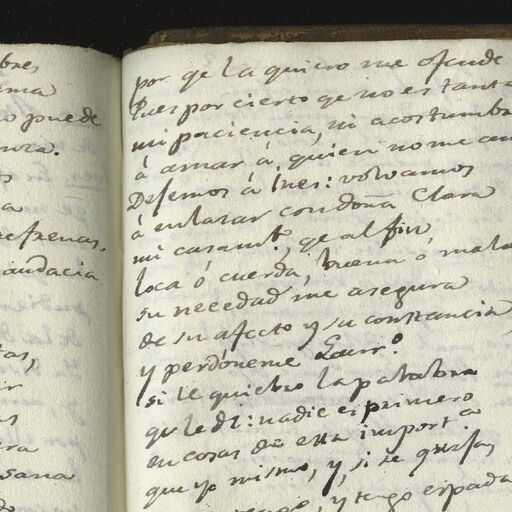 bres
o puede
refrenas.
audacia
tas,
sana
por qe la quiero me ofende
Pues por cierto qe no es tanta
mi paciencia, ni acostumbro
á amar á quien no me am
Dejemos á Ines: volvamos
á enlazar con doña Clara
mi casamto, qe al fin,
loca ó cuerda, buena ó mala
su necedad me asegura
de su afecto y su constancia
y perdóneme Laur.o
si le quiebro la palabra
qe le di: nadie es primero
en cosas de esta import.a
que yo mismo, y, si se quejas
tengo, y tengo espada